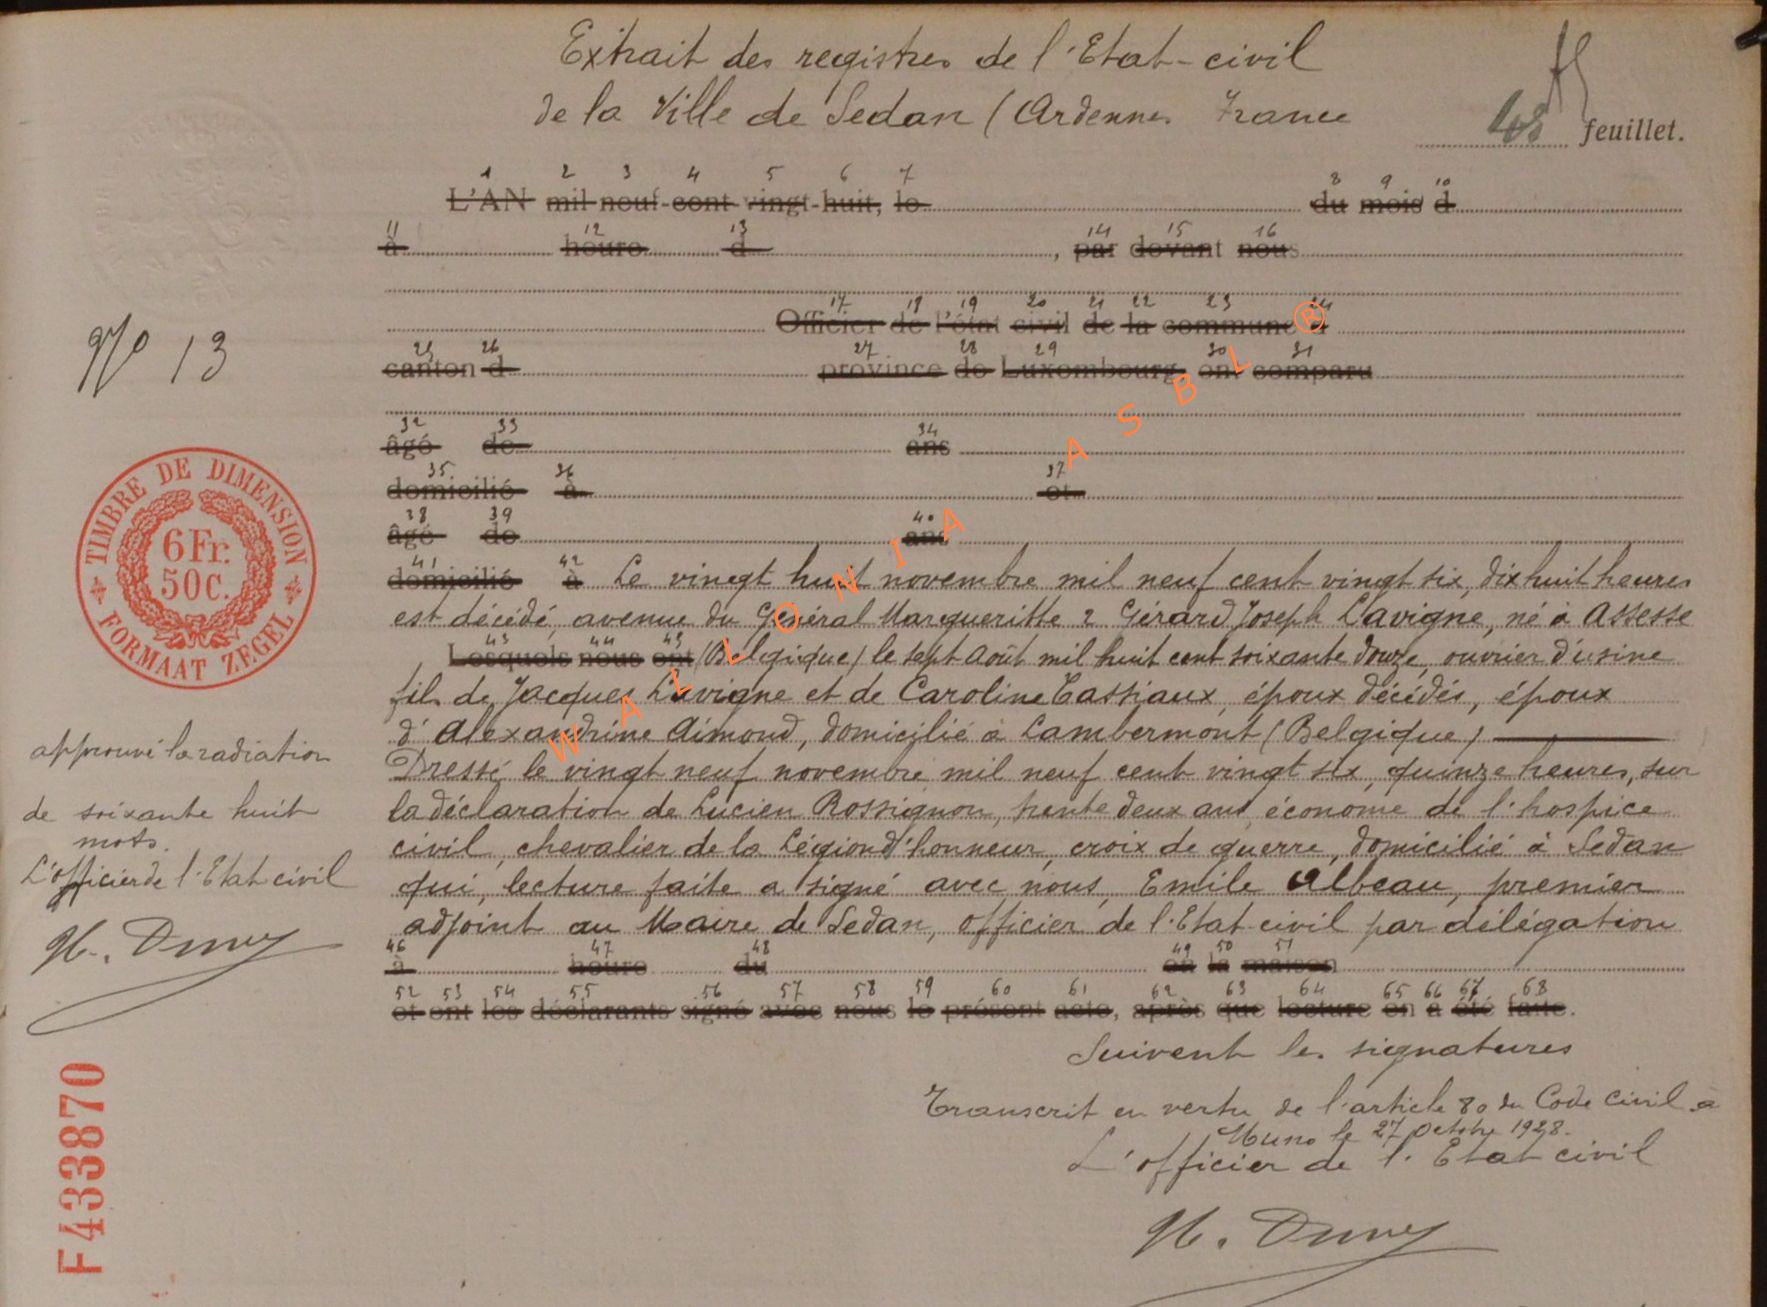 Extrait des registres de l'Etat-civil
de la Ville de Sedan (Ardennes France
feuillet.
1 2 3 4 5 6 7 8 9 10
L'AN mil neuf-cent vingt-huit, le du mois d
11 12 13 14 15 16
à heure d , par devant nous
17 18 19 20 21 22 23 24
Officier de l'état civil de la commune d
N° 13
25 26 27 28 29 30 31
canton d province de Luxembourg ont comparu
32 33 34
âgé de ans
35 36 37
domicilié à et
38 39 40
âgé de ans
41 42
domicilié à Le vingt huit novembre mil neuf cent vingt six, dix huit heures
est décédé, avenue du Général Margueritte 2 Gérard Joseph Lavigne, né à Assesse
43 44 45
Lesquels nous ont (Belgique) le sept Août mil huit cent soixante douze, ouvrier d'usine
fils de Jacques Lavigne et de Caroline Tassiaux, époux décédés, époux
d'Alexandrine Aimond, domicilié à Lambermont (Belgique)
Dressé, le vingt neuf novembre mil neuf cent vingt six, quinze heures, sur
la déclaration de Lucien Rossignon, trente deux ans, économe de l'hospice
civil, chevalier de la Légion d'honneur, croix de guerre, domicilié à Sedan
qui, lecture faite a signé avec nous, Emile Albeau, premier
adjoint au Maire de Sedan, officier de l'Etat-civil par délégation
46 47 48 49 50 51
à heure du en la maison
52 53 54 55 56 57 58 59 60 61 62 63 64 65 66 67 68
et ont les déclarants signé avec nous le présent acte, après que lecture en a été faite.
Suivent les signatures
Transcrit en vertu de l'article 80 du Code Civil à
Muno le 27 octobre 1928.
L'officier de l'Etat civil
TIMBRE DE DIMENSION
6 Fr.
50 C.
FORMAAT ZEGEL
approuvé la radiation
de soixante huit
mots.
L'officier de l'Etat civil
F433870
WALLONIA ASBL ®